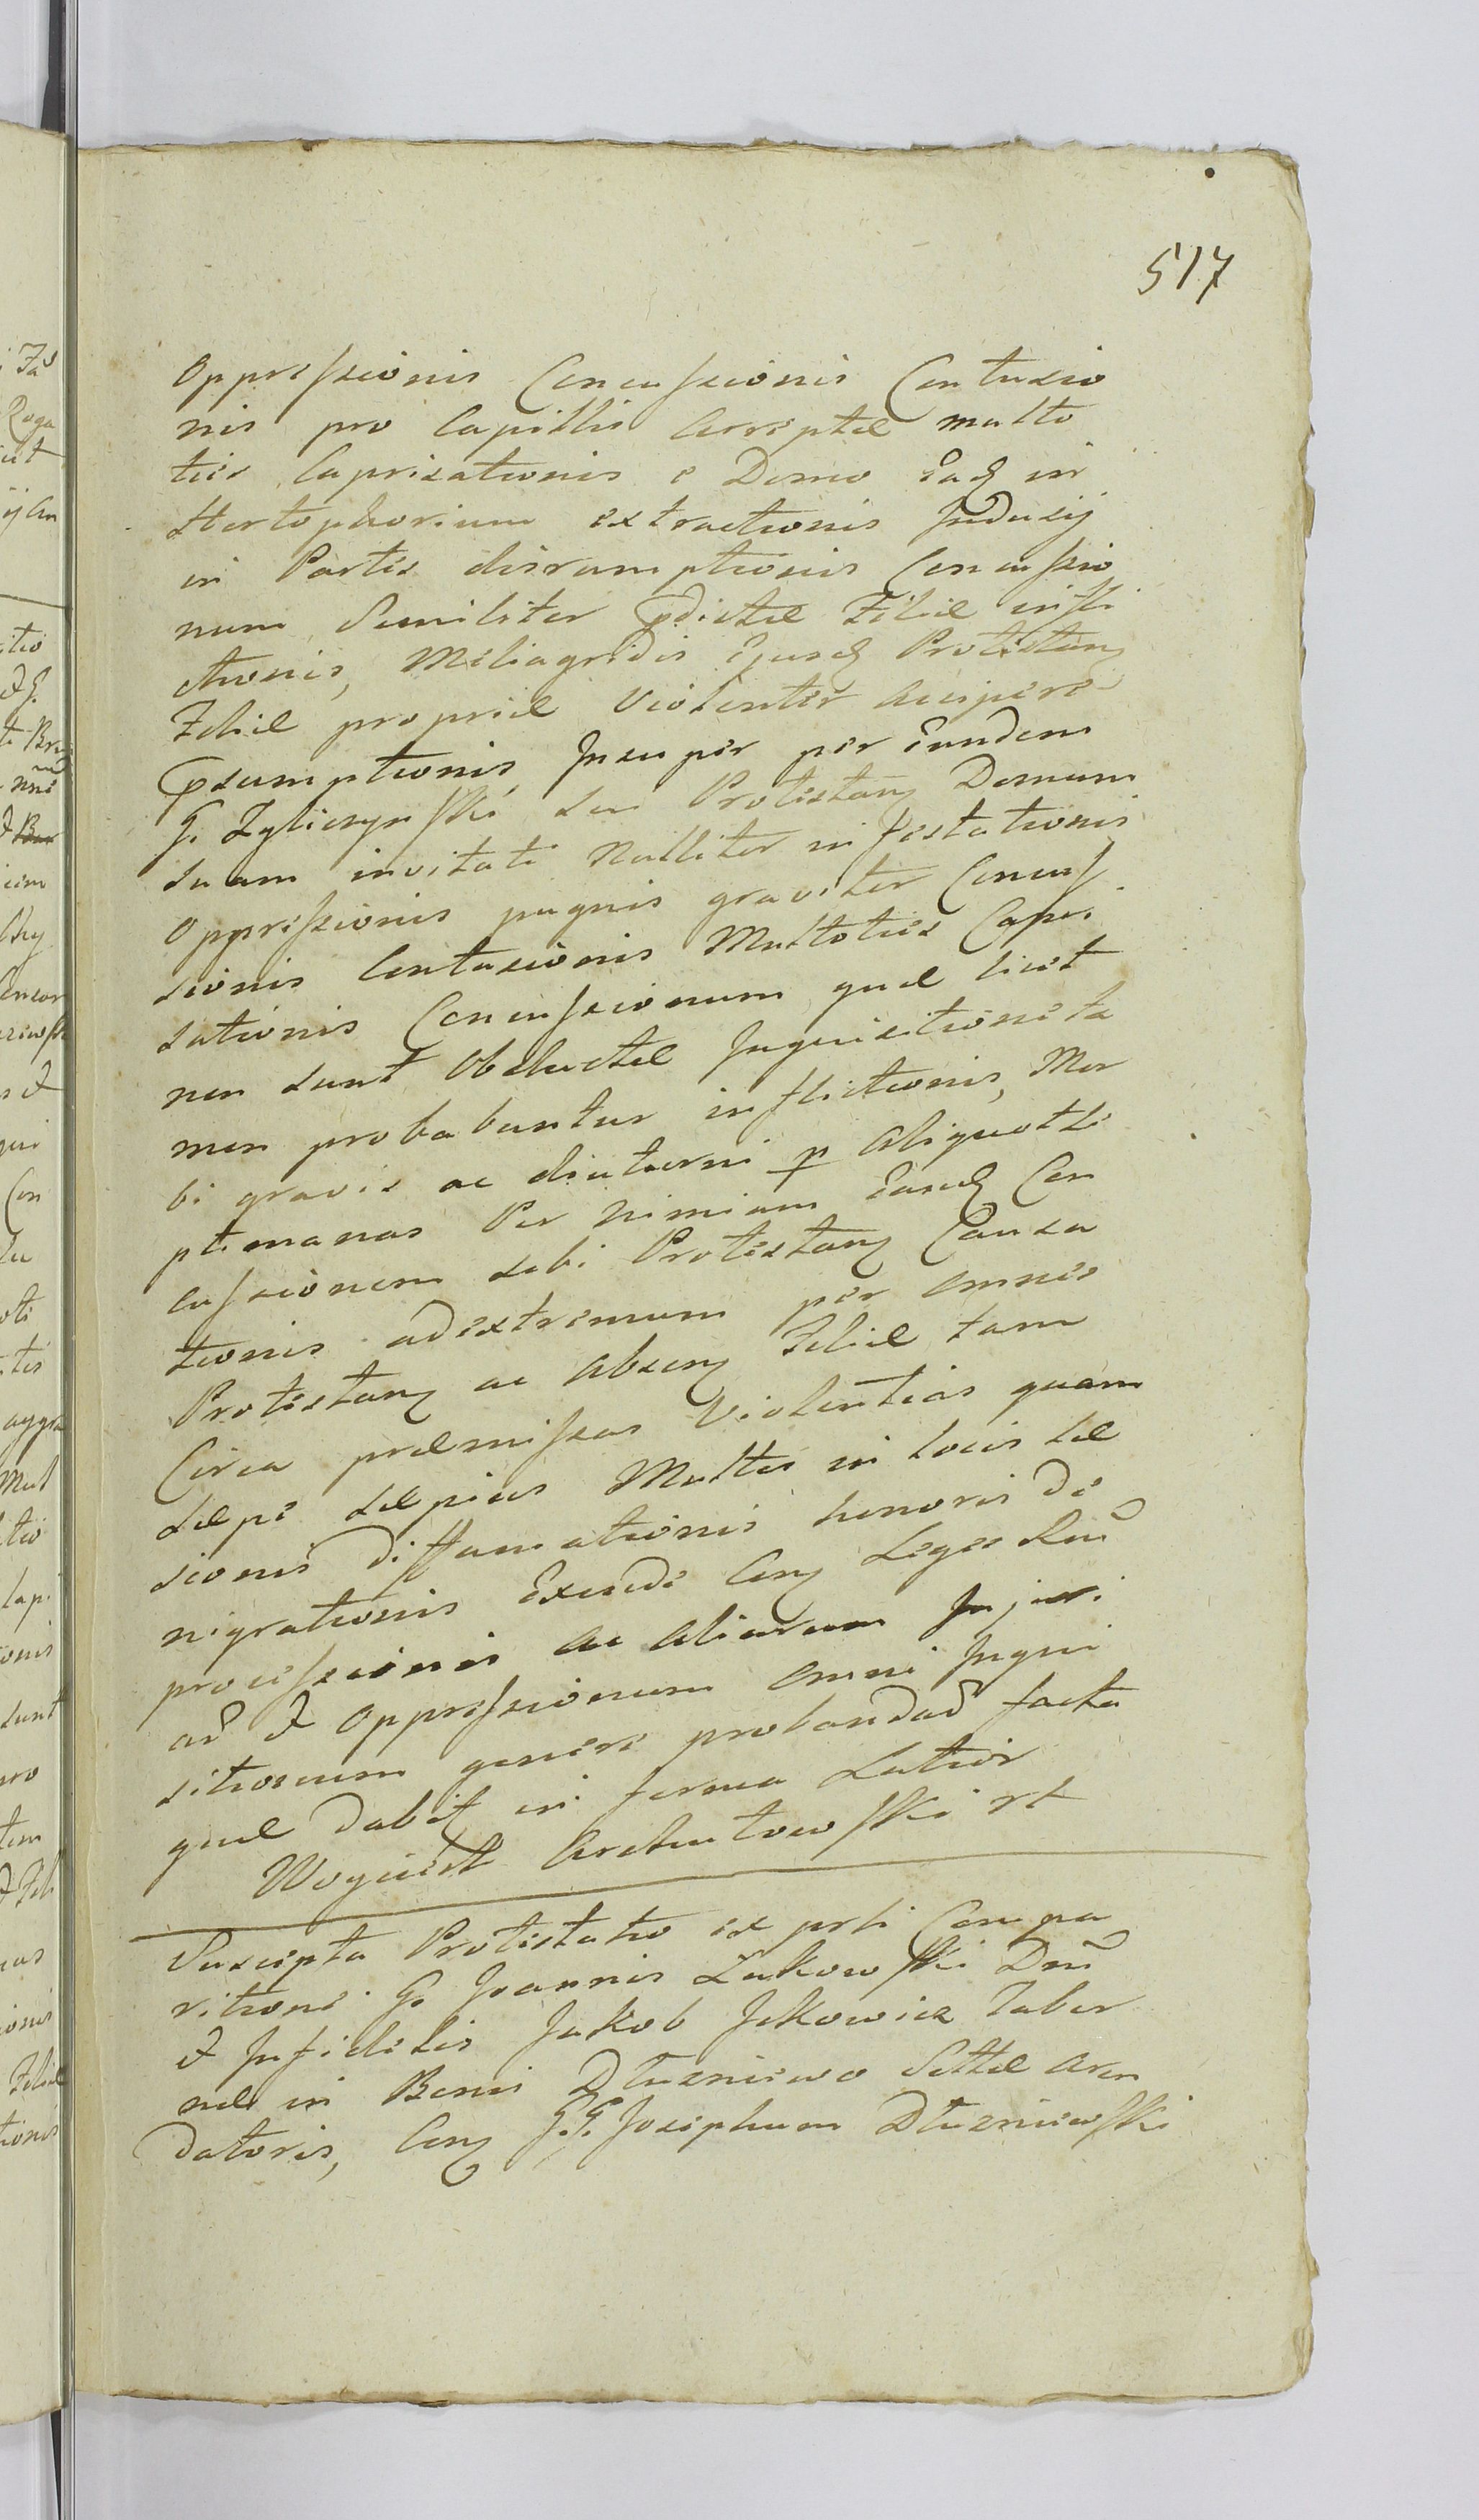 517
Oppressionis Concussionis Contusio
nis pro Capillis Arreptæ multo
ties Caprisationis e Domo Eaq in
Stertophorium extractionis Indusij
in Partes disrumptionis Concussio
num Similiter pdictæ Filiæ infli
ctionis, Meliagridis Ejusq Protestang
Filiæ propriæ Violenter Accipere
Psumptionis, Insuper per Eundem
G. Zyliczynski seu Protestang Domum
suam invitati Nulliter infestationis
Oppressionis pugnis graviter Concus
sionis Contusionis Multoties Capri
sationis Concussionum quæ licet
non sunt Obductæ Inquisitione ta
men probabuntur inflictionis, Mor
bi gravis ac diuturni p Aliquot Se
ptimanas Per nimiam Eamq Con
cussionem sibi Protestang Causa
tionis ad extremum per omnes
Protestang ac Abseng Filiæ tam
Circa præmissas Violentias quam
sæpe sæpius Multis in locis læ
sionis diffamationis honoris de
nigrationis Exinde Cong Leges Rni
processionis ac Aliarum Injuri
ad & Oppressionum omni Inqui
sitionum genere probandad facta
quæ dabit in forma Latior
Woyciech Archutowski rt
Suscepta Protestatio ex prti Compa
ritione G. Joannis Zukowski Dni
& Infidelis Jakob Jckowicz Taber
næ in Bonis Dłuzniewo Sittæ Aren
datoris, Cong G.G. Josephum Dłuzniewski